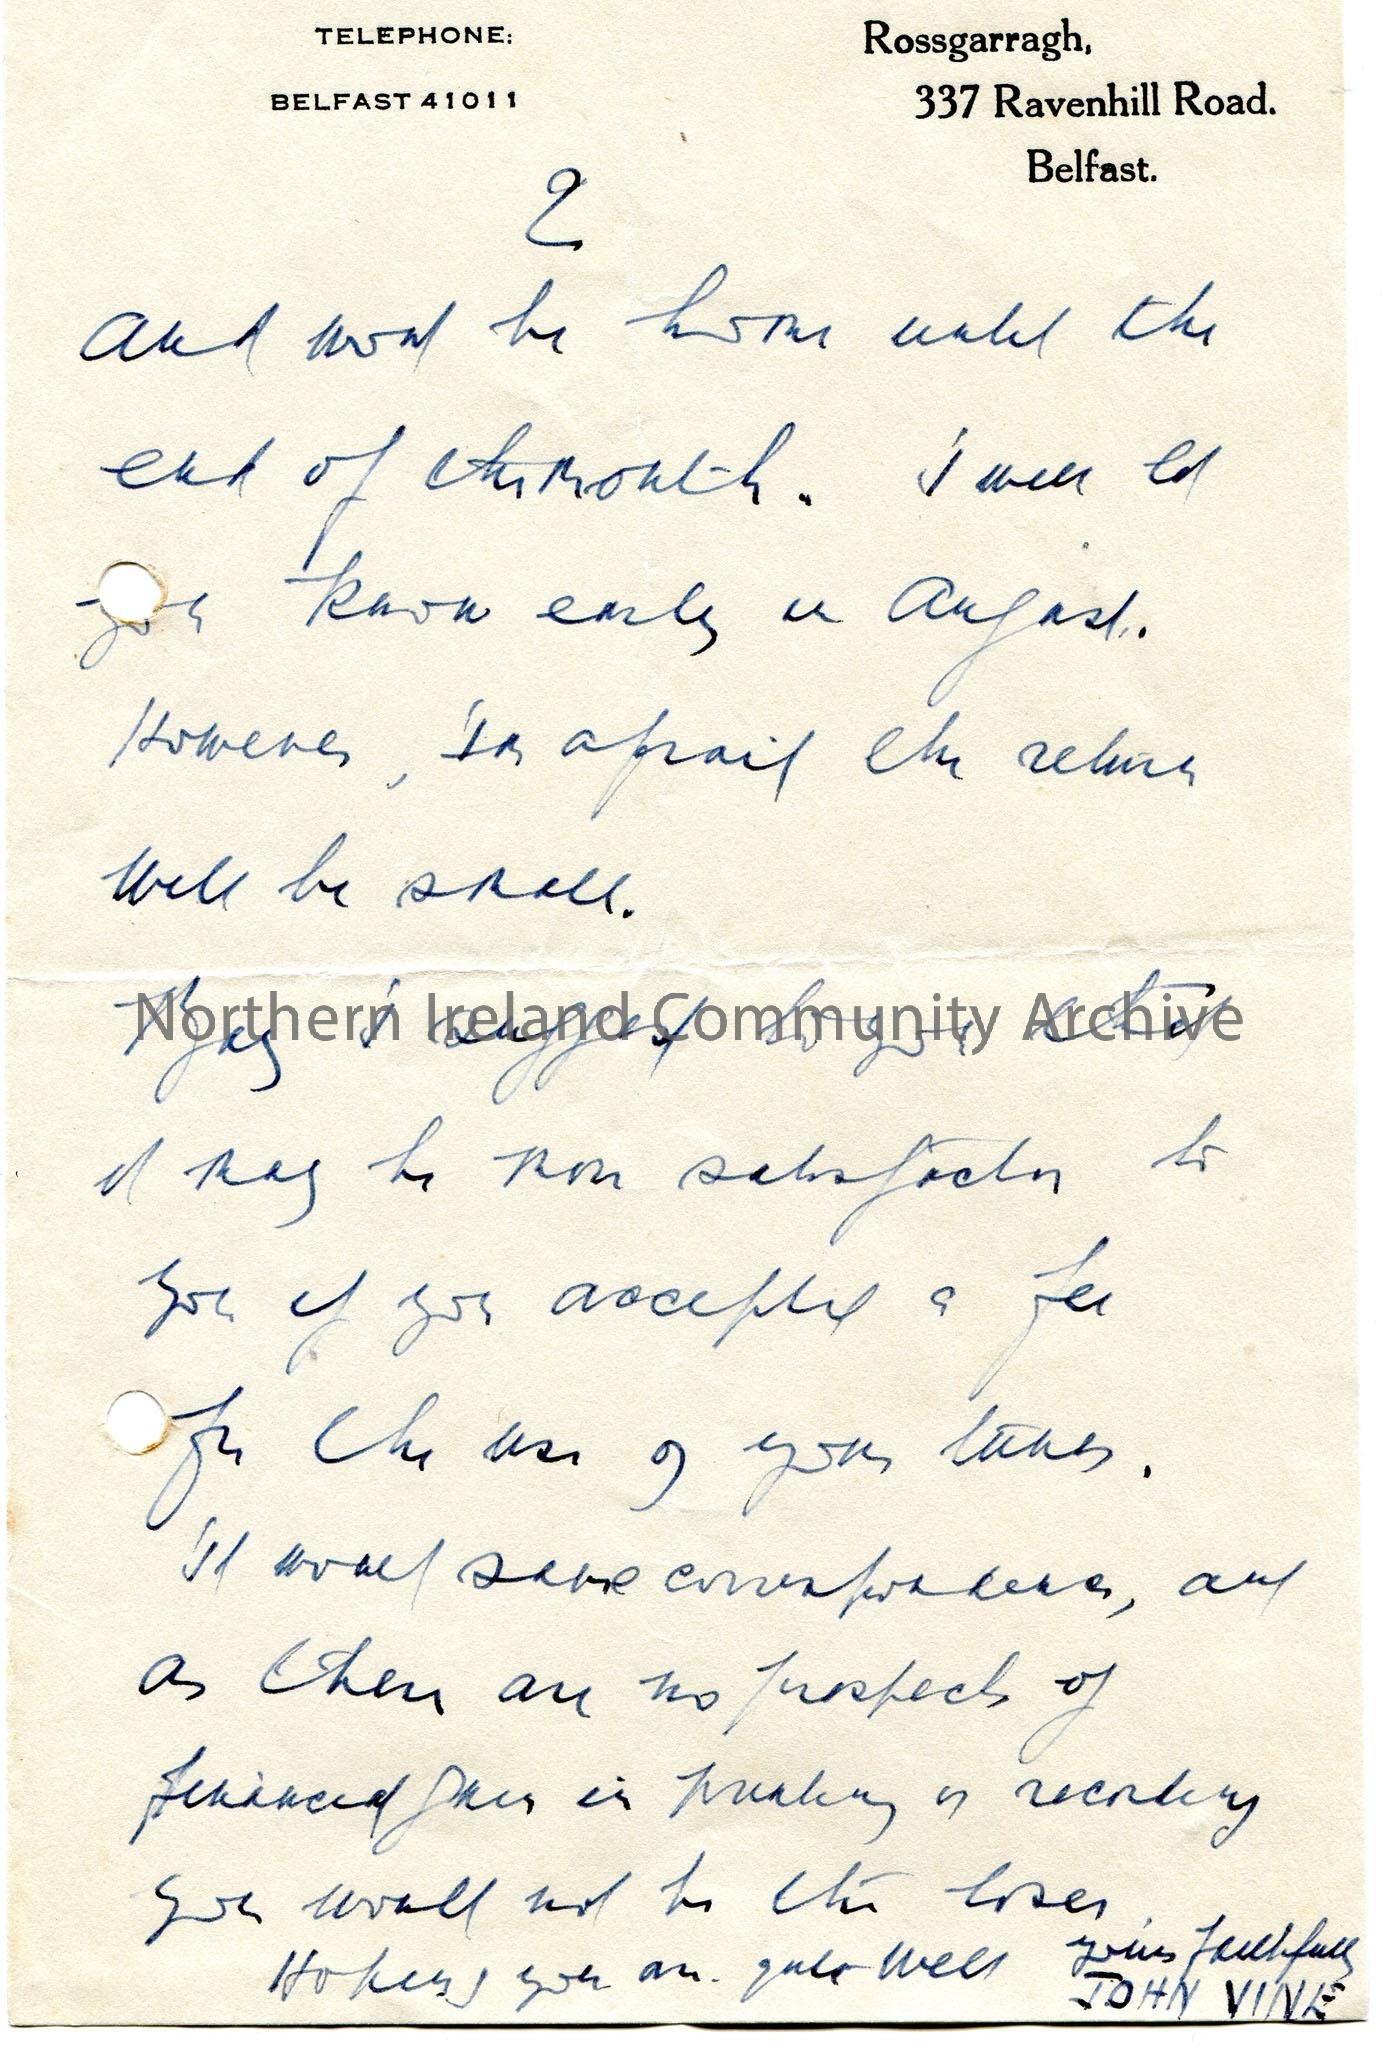 TELEPHONE:
BELFAST 41011
Rossgarragh,
337 Ravenhill Road.
Belfast.
2
and wont be home until the
end of the month. I will let
you know early in August.
However, I'm afraid the return
will be small.
May I suggest to you that
it may be more satisfactory to
you if you accepted a fee
for the use of your tunes.
It would save correspondence, and
as there are no prospects of
financial gain in printing or recording
you would not be the loser.
Hoping you are quite well
yours faithfully
JOHN VINE
Northern Ireland Community Archive